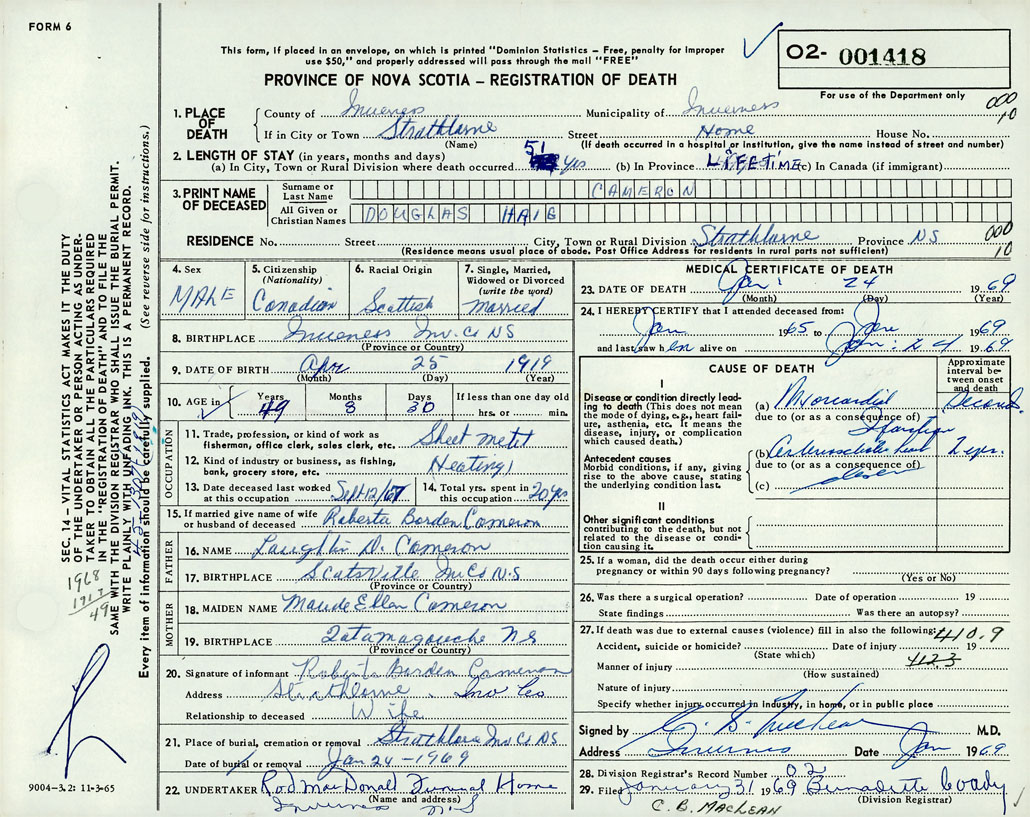 FORM 6
This form, if placed in an envelope, on which is printed "Dominion Statistics – Free, penalty for improper
use $50," and properly addressed will pass through the mail "FREE"
O2- 001418
For use of the Department only
PROVINCE OF NOVA SCOTIA – REGISTRATION OF DEATH
1. PLACE OF DEATH
County of Inverness Municipality of Inverness 000 10
If in City or Town Strathlorne Street Home House No.
(Name) (If death occurred in a hospital or institution, give the name instead of street and number)
2. LENGTH OF STAY (in years, months and days)
(a) In City, Town or Rural Division where death occurred 51 yrs (b) In Province LIFETIME (c) In Canada (if immigrant)
3. PRINT NAME OF DECEASED
Surname or Last Name CAMERON
All Given or Christian Names DOUGLAS HAIG
RESIDENCE No. Street City, Town or Rural Division Strathlorne Province NS 000 10
(Residence means usual place of abode. Post Office Address for residents in rural parts not sufficient)
4. Sex MALE
5. Citizenship (Nationality) Canadian
6. Racial Origin Scottish
7. Single, Married, Widowed or Divorced (write the word) Married
8. BIRTHPLACE Inverness Inv. Co NS
(Province or Country)
9. DATE OF BIRTH Apr 25 1919
(Month) (Day) (Year)
10. AGE in Years 49 Months 8 Days 30 If less than one day old hrs. or min.
OCCUPATION
11. Trade, profession, or kind of work as fisherman, office clerk, sales clerk, etc. Sheet metal
12. Kind of industry or business, as fishing, bank, grocery store, etc. Heating
13. Date deceased last worked at this occupation Sept 12/67
14. Total yrs. spent in this occupation 20 yrs
15. If married give name of wife or husband of deceased Roberta Borden Cameron
FATHER
16. NAME Laughlin D. Cameron
17. BIRTHPLACE Scotsville Inv Co N.S
(Province or Country)
MOTHER
18. MAIDEN NAME Maude Ellen Cameron
19. BIRTHPLACE Tatamagouche NS
(Province or Country)
20. Signature of informant Roberta Borden Cameron
Address Strathlorne Inv Co
Relationship to deceased Wife
21. Place of burial, cremation or removal Strathlorne Inv Co NS
Date of burial or removal Jan 24 – 1969
22. UNDERTAKER Rod MacDonald Funeral Home
(Name and address)
Inverness N.S
MEDICAL CERTIFICATE OF DEATH
23. DATE OF DEATH Jan. 24 1969
(Month) (Day) (Year)
24. I HEREBY CERTIFY that I attended deceased from:
Jan 1965 to Jan 1969
and last saw him alive on Jan. 24 1969
CAUSE OF DEATH
Approximate interval between onset and death
I
Disease or condition directly leading to death (This does not mean the mode of dying, e.g., heart failure, asthenia, etc. It means the disease, injury, or complication which caused death.)
(a) Myocardial Seconds
due to (or as a consequence of)
Infarction
Antecedent causes
Morbid conditions, if any, giving rise to the above cause, stating the underlying condition last.
(b) Arteriosclerotic heart 2 yrs.
due to (or as a consequence of)
(c) disease
II
Other significant conditions
contributing to the death, but not related to the disease or condition causing it.
25. If a woman, did the death occur either during pregnancy or within 90 days following pregnancy?
(Yes or No)
26. Was there a surgical operation? Date of operation 19
State findings Was there an autopsy?
27. If death was due to external causes (violence) fill in also the following: 410.9
Accident, suicide or homicide? Date of injury 19
(State which) 412.3
Manner of injury
(How sustained)
Nature of injury
Specify whether injury occurred in industry, in home, or in public place
Signed by C. B. MacLean M.D.
Address Inverness Date Jan 1969
28. Division Registrar's Record Number 02
29. Filed January 31 1969 Bernadette Coady
(Division Registrar)
C. B. MACLEAN
SEC. 14 – VITAL STATISTICS ACT MAKES IT THE DUTY
OF THE UNDERTAKER OR PERSON ACTING AS UNDER-
TAKER TO OBTAIN ALL THE PARTICULARS REQUIRED
IN THE "REGISTRATION OF DEATH" AND TO FILE THE
SAME WITH THE DIVISION REGISTRAR WHO SHALL ISSUE THE BURIAL PERMIT.
WRITE PLAINLY WITH UNFADING INK. THIS IS A PERMANENT RECORD.
Every item of information should be carefully supplied. (See reverse side for instructions.)
1968
1919
49
9004-3.2: 11-3-65